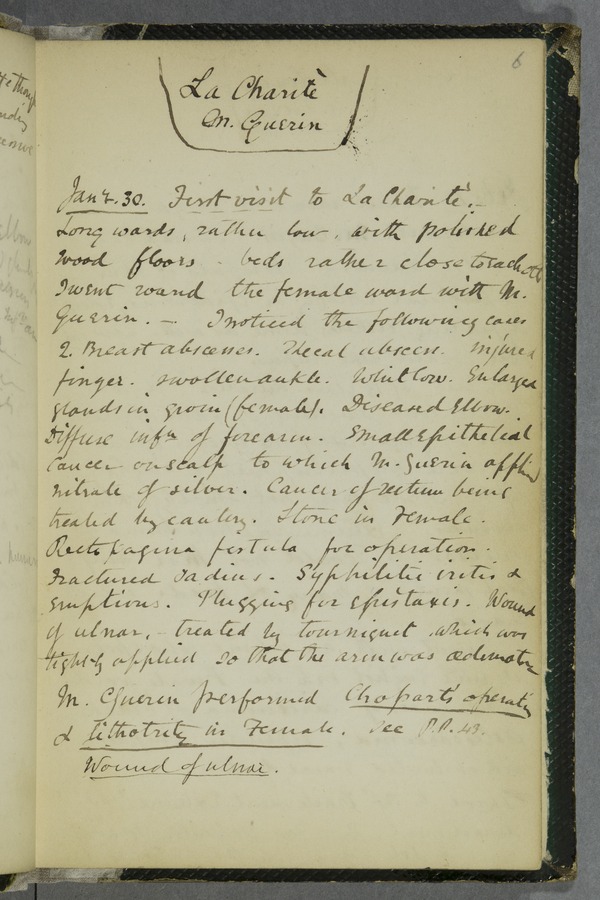 6
La Charitè
M. Guerin
Jany. 30. First visit to La Charitè. -
Long wards, rather low, with polished
wood floors - beds rather close to each other
I went round the female ward with M.
Guerin. - I noticed the following cases
2. Breast abscesses. Thecal abscess. injured
finger. swollen ankle. Whitlow. Enlarged
glands in groin (female). Diseased Elbow.
Diffuse infn of forearm. Small Epithelial
Cancer on scalp to which M. Guerin applied
nitrate of silver. Cancer of rectum being
treated by cautery. Stone in Female.
Recto vagina fistula for operation.
Fractured radius. Syphilitic iritis &
eruptions. Plugging for epistaxis. Wound
of ulnar, - treated by tourniquet which was
tightly applied so that the arm was œdematous
M. Guerin performed Chopart's operation
& lithotrity in Female. See P.P. 43.
Wound of ulnar.